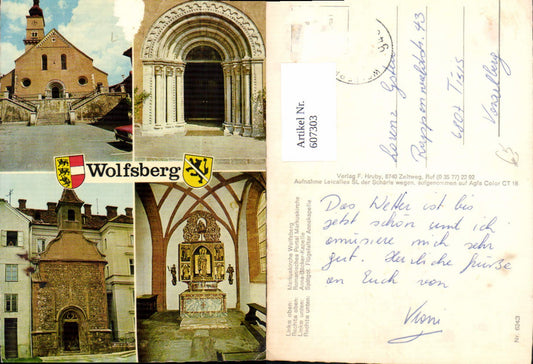 Wolfsberg
Artikel Nr.
607303
Verlag F. Hruby, 8740 Zeltweg, Ruf (0 35 77) 23 92
Aufnahme Leicaflex SL der Schärfe wegen, aufgenommen auf Agfa Color CT 18
Links oben: Markuskirche Wolfsberg
Rechts oben: Romanisches Portal Markuskirche
Links unten: Anna-Bäcker-Kapelle
Rechts unten: Gotisch. Flügelaltar Annakapelle
Nr. 6243
Lorenz
43
Das Wetter ist bis
jetzt schön und ich
amüsiere mich sehr
gut. Herzliche Grüße
an Euch von